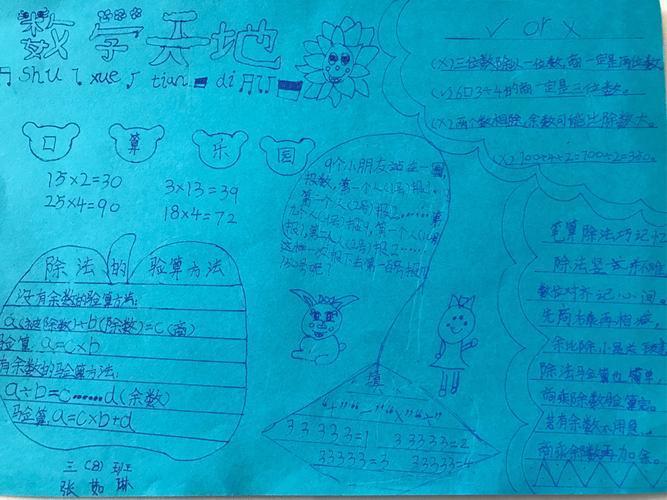 数学天地
shu xue tian di
口 算 乐 园
15×2=30
3×13=39
25×4=90
18×4=72
除法的验算方法
没有余数的验算方法:
a(被除数)÷b(除数)=c(商)
验算:a=c×b
有余数的验算方法:
a÷b=c……d(余数)
验算:a=c×b+d
三(8)班
张茹琳
9个小朋友站在一圈,
报数,第一个人(1号)报1.
第二个人(2号)报2……第
九个人(9号)报9,第一个人(1号)
这样一次报下去第
填
"+""-""×""÷"
3 3 3 3 3=1 3 3 3 3 3=2
3 3 3 3 3=3 3 3 3 3 3=4
✓ or ×
(×)三位数除以一位数,商一定是两位数。
(✓)6口3÷4的商一定是三位数。
(×)两个数相除,余数可能比除数大。
(×)700÷4÷2=700÷2=350。
笔算除法巧记忆
除法竖式并不难
数位对齐记心间。
先商右乘再相减,
余比除小是关键
除法验算也简单,
商乘除数验算完。
若有余数不用急,
商乘除数再加余。